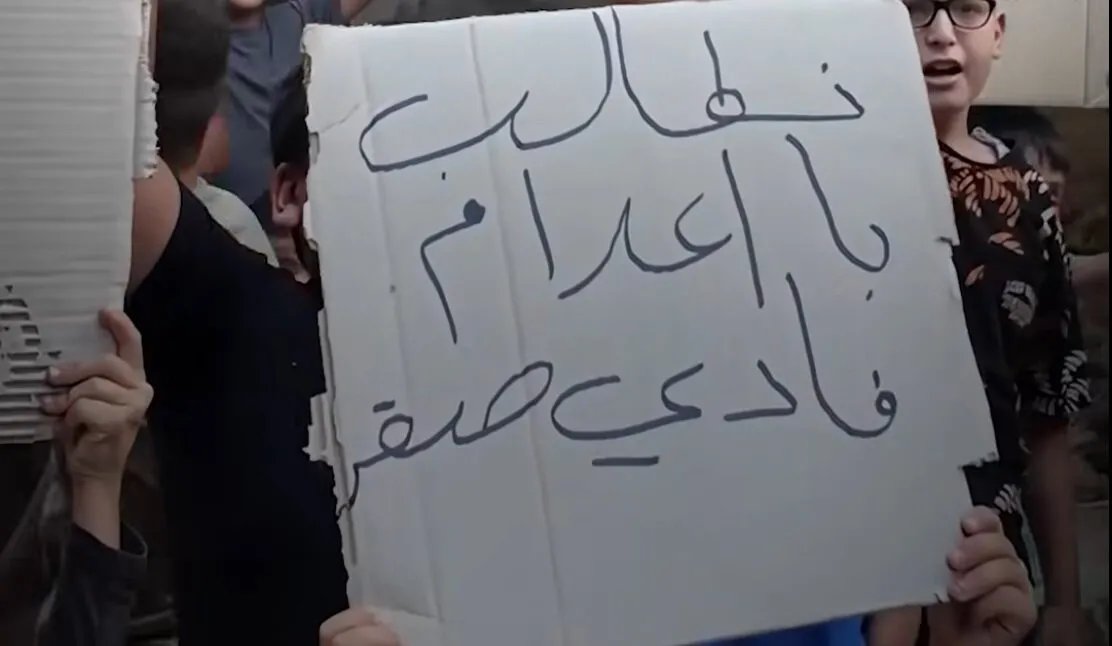 نطالب
با اعدام
فادي صقر